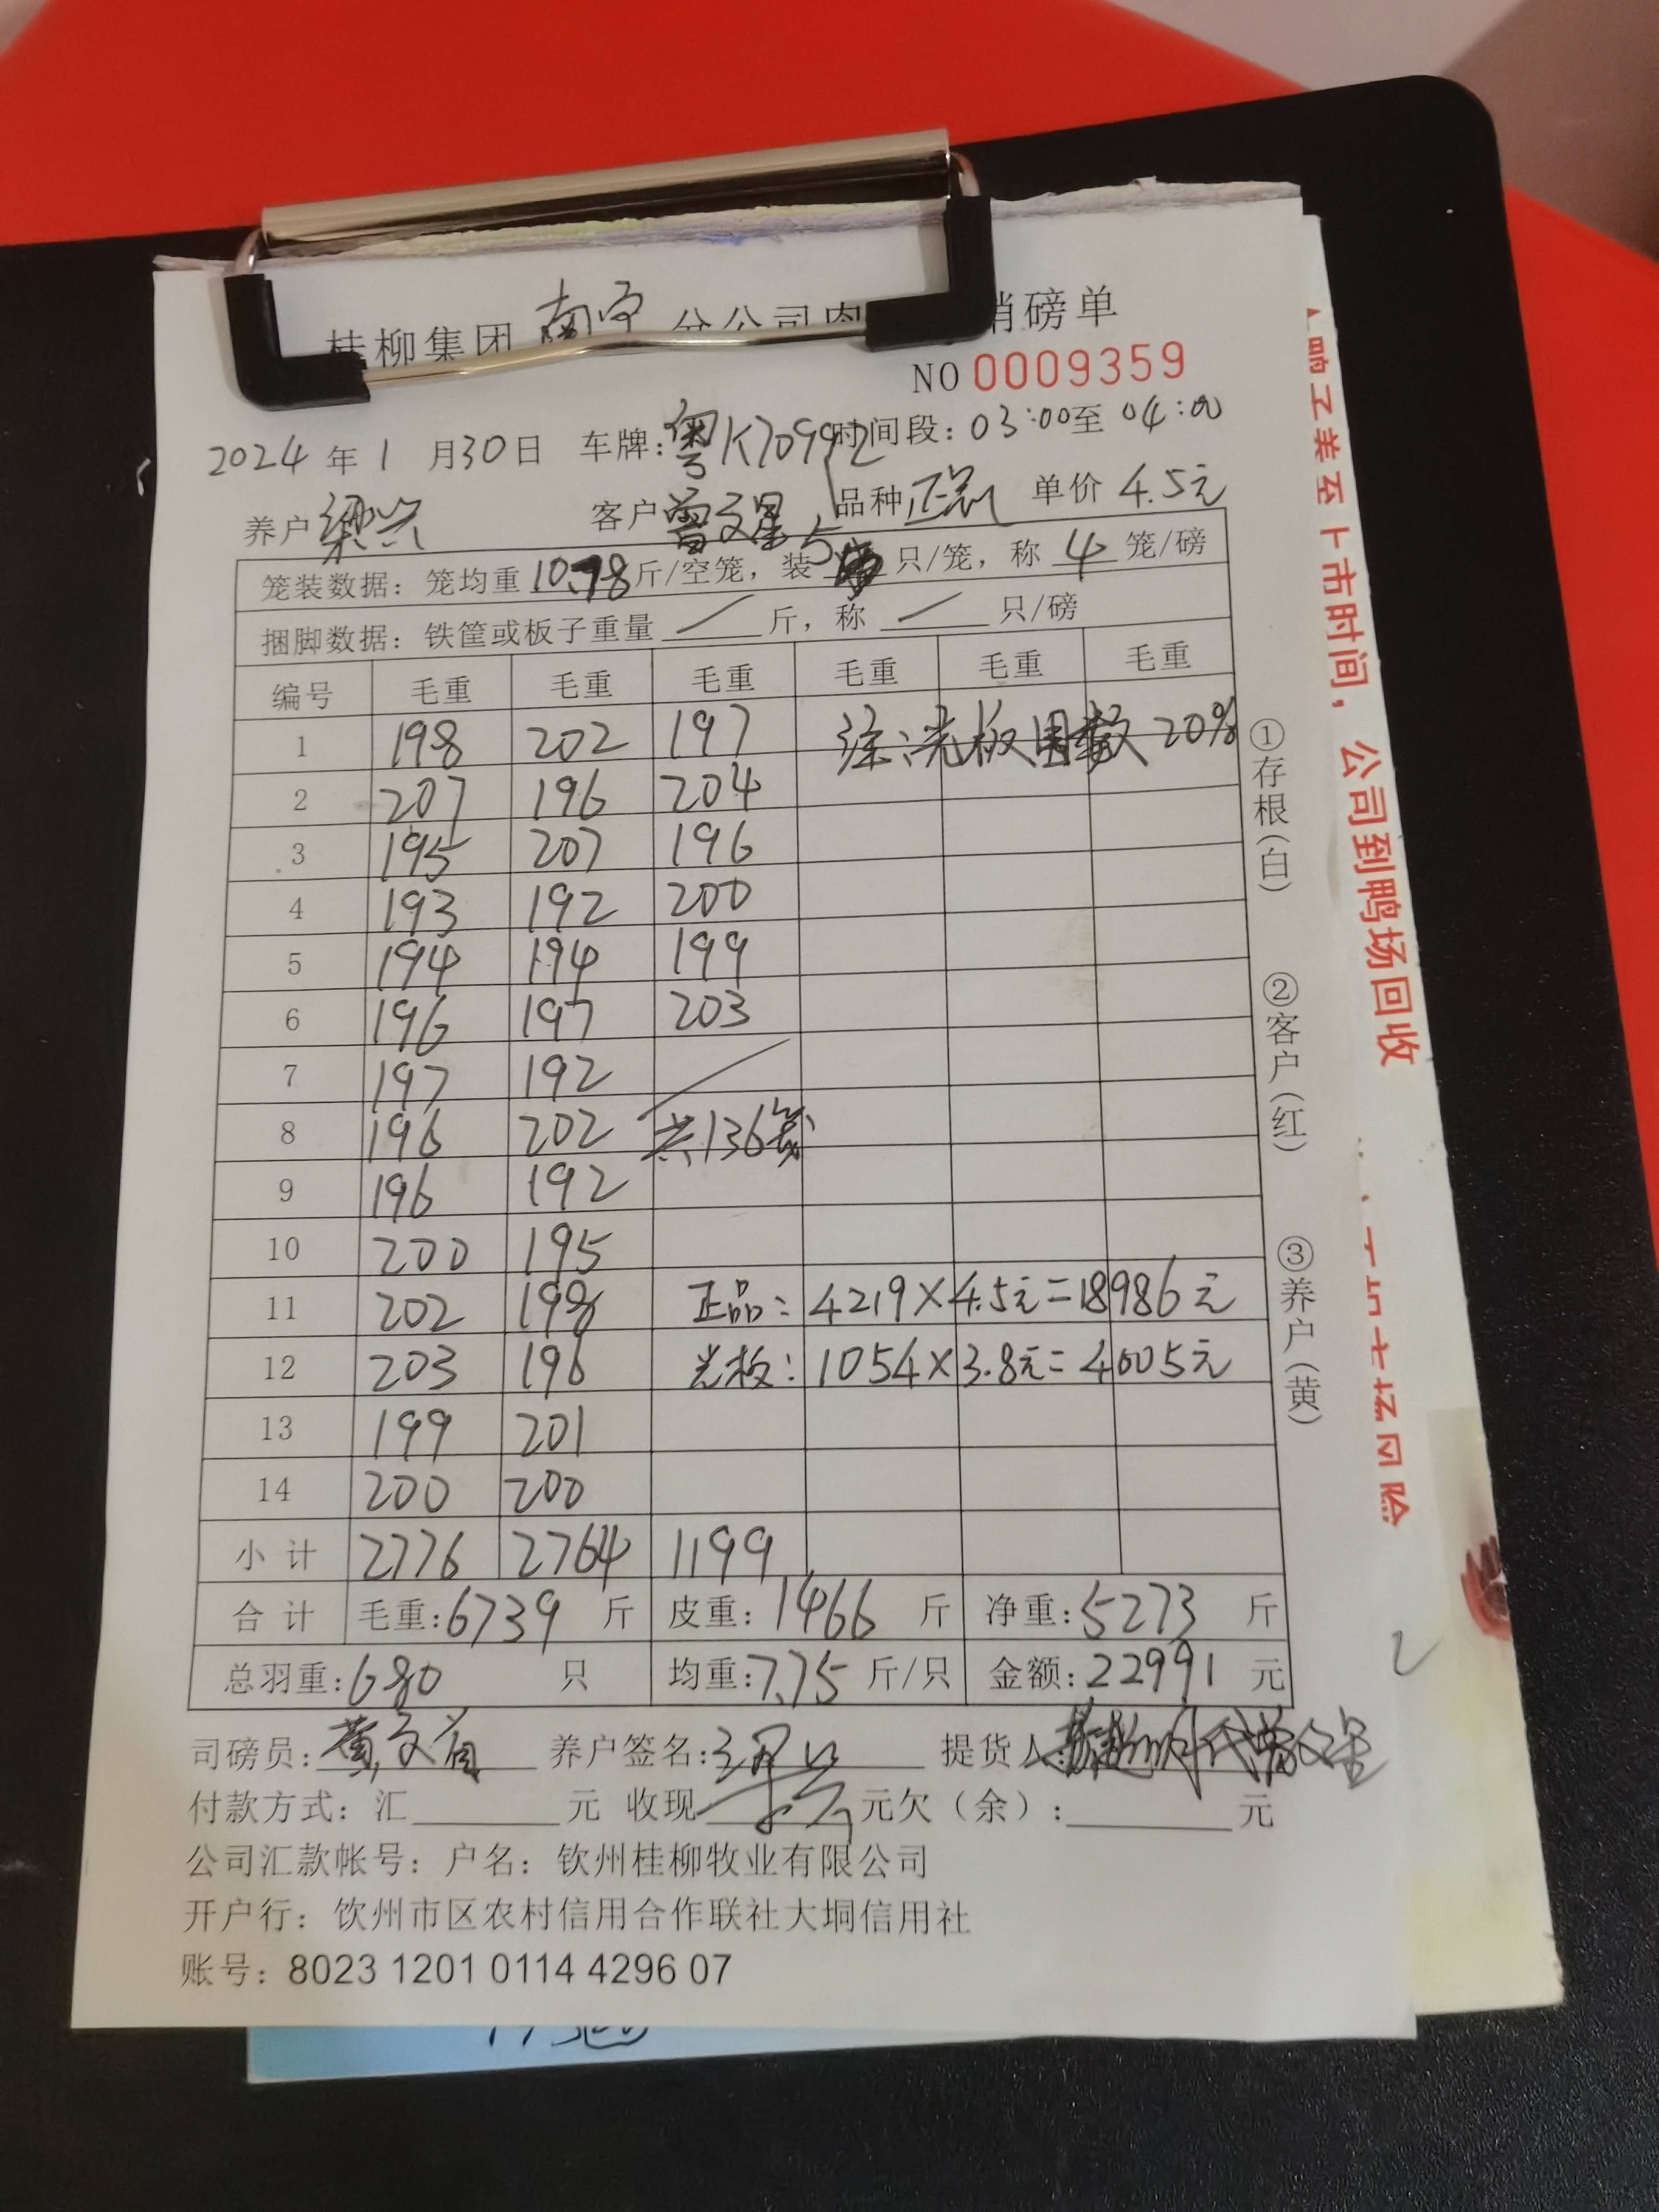 桂柳集团 南宁 分公司肉 销磅单
NO 0009359
2024 年 1 月 30 日 车牌: 粤K70992 时间段: 03:00 至 04:00
养户 梁兴 客户 曾文星 品种 正 单价 4.5元
笼装数据: 笼均重 10.78 斤/空笼, 装 5 只/笼, 称 4 笼/磅
捆脚数据: 铁筐或板子重量 / 斤, 称 / 只/磅
编号 毛重 毛重 毛重 毛重 毛重 毛重
1 198 202 197 光板 20%
2 207 196 204
3 195 207 196
4 193 192 200
5 194 194 199
6 196 197 203
7 197 192
8 196 202 共136笼
9 196 192
10 200 195
11 202 198 正品: 4219×4.5元=18986元
12 203 196 光板: 1054×3.8元=4005元
13 199 201
14 200 200
小计 2776 2764 1199
合计 毛重: 6739 斤 皮重: 1466 斤 净重: 5273 斤
总羽重: 680 只 均重: 7.75 斤/只 金额: 22991 元
司磅员: 黄文 养户签名: 提货人:
付款方式: 汇 元 收现 元 欠(余): 元
公司汇款帐号: 户名: 钦州桂柳牧业有限公司
开户行: 钦州市区农村信用合作联社大垌信用社
账号: 8023 1201 0114 4296 07
①存根(白)
②客户(红)
③养户(黄)
上市时间, 公司到鸭场回收
风险